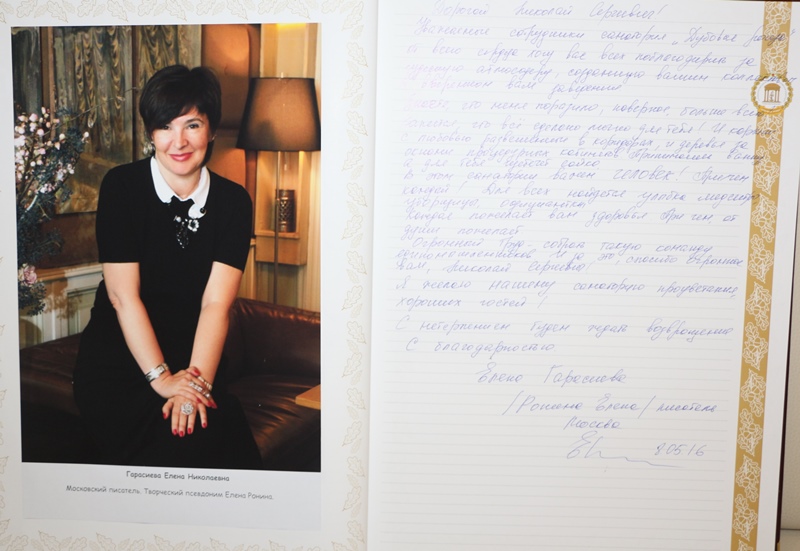 Гарасиева Елена Николаевна
Московский писатель. Творческий псевдоним Елена Ронина.
Дорогой Николай Сергеевич!
Уважаемые сотрудники санатория „Дубовая роща"
от всего сердца хочу вас всех поблагодарить за
атмосферу, созданную вашим
вам заведении
что меня поразило, наверное, больше всего
что всё сделано именно для тебя! И
с любовью развешанные в коридорах, и деревья за
окнами
а для тебя
В этом санатории важен человек! Причем
каждый! Для всех найдется улыбка
уборщицы, официантки
Которая пожелает вам здоровья. Причем от
души пожелает
Огромный труд – собрать такую команду
единомышленников. И за это спасибо огромное
Вам, Николай Сергеевич!
Я желаю нашему санаторию процветания,
хороших гостей!
С нетерпением будем ждать возвращения
С благодарностью
Елена Гарасиева
/Ронина Елена/ писатель
Москва
9.05.16